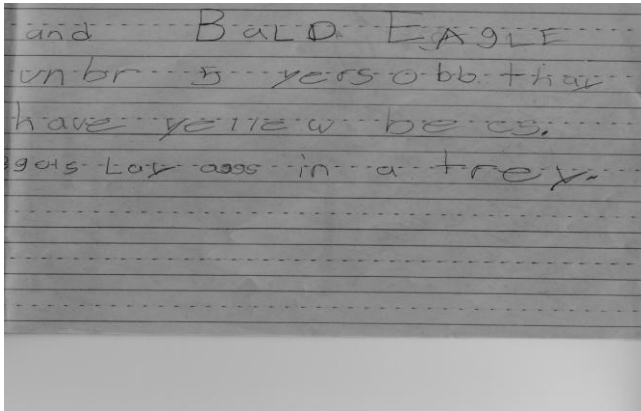 and BaLD EAgLE
unbr 5 yers obb thay
have yellew beecs.
Lay aggs in a trey.